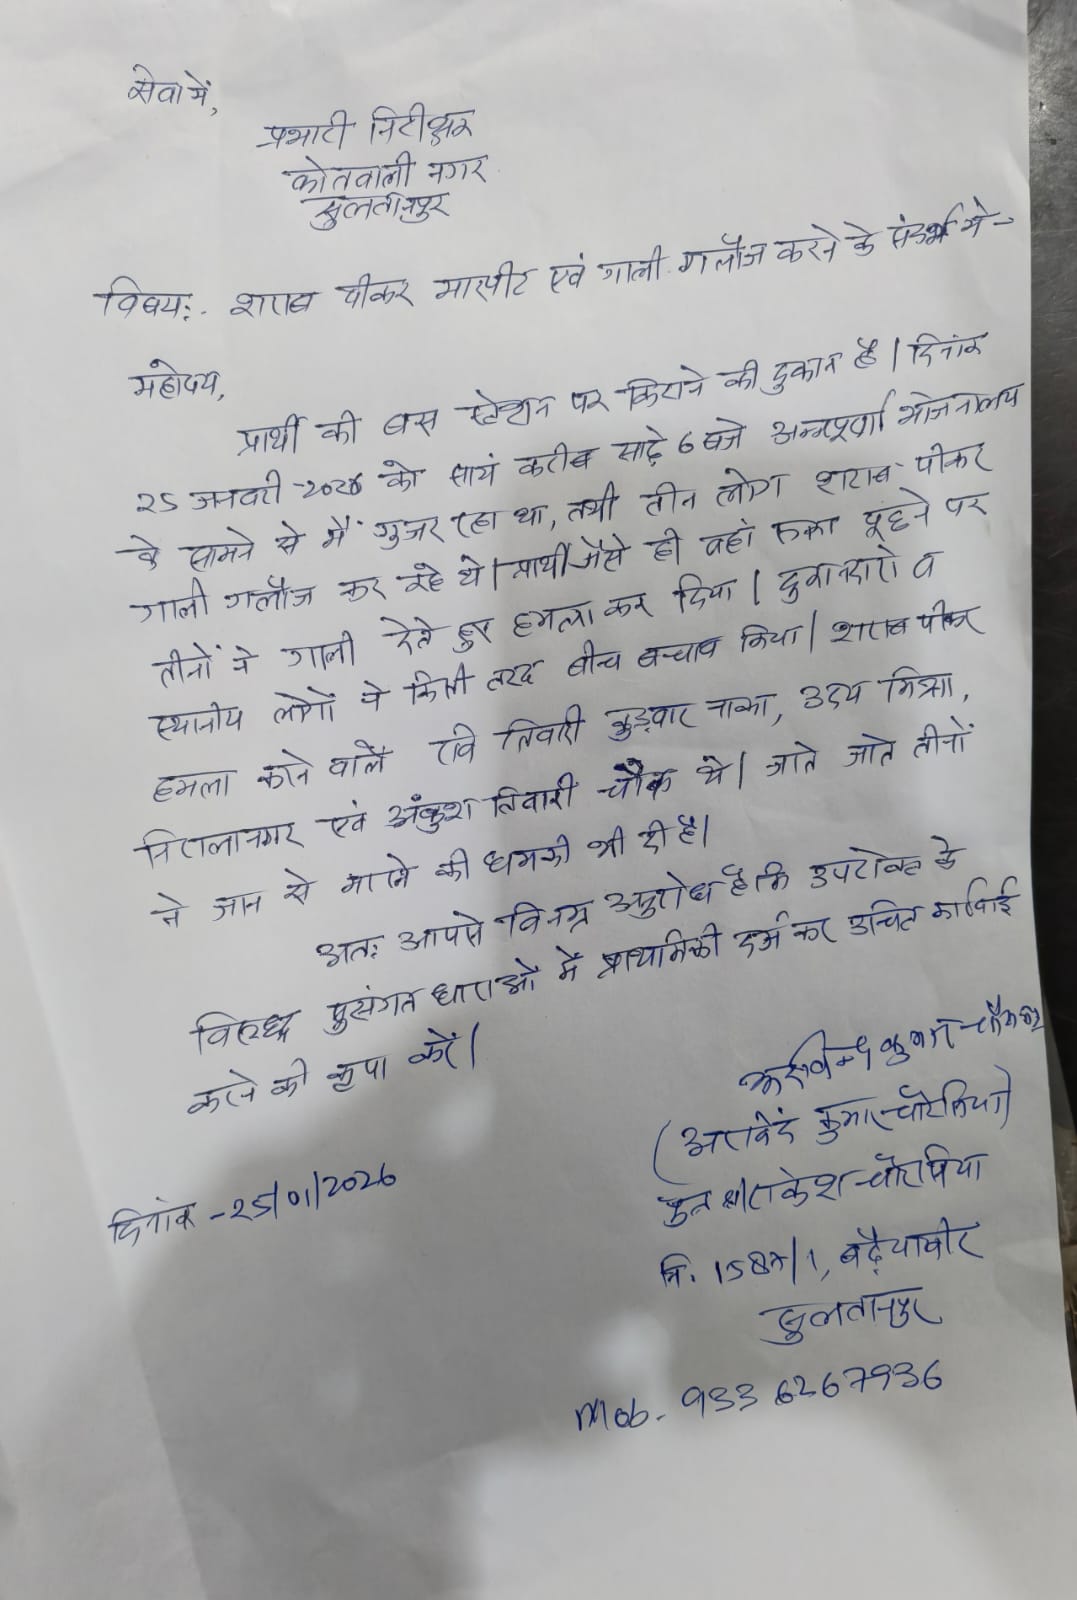 सेवा में,
प्रभारी निरीक्षक
कोतवाली नगर
सुलतानपुर
विषय:- शराब पीकर मारपीट एवं गाली गलौज करने के संदर्भ में-
महोदय,
प्रार्थी की बस स्टेशन पर किराने की दुकान है। दिनांक
25 जनवरी-2026 को सायं करीब साढ़े 6 बजे अन्नपूर्णा भोजनालय
के सामने से मैं गुजर रहा था, तभी तीन लोग शराब पीकर
गाली गलौज कर रहे थे। प्रार्थी जैसे ही वहां रुका पूछने पर
तीनों ने गाली देते हुए हमला कर दिया। दुकानदारों व
स्थानीय लोगों ने किसी तरह बीच बचाव किया। शराब पीकर
हमला करने वाले रवि तिवारी कुड़वार नाका, उदय मिश्रा,
निरालानगर एवं अंकुश तिवारी चौक थे। जाते जाते तीनों
ने जान से मारने की धमकी भी दी है।
अतः आपसे विनम्र अनुरोध है कि उपरोक्त के
विरुद्ध सुसंगत धाराओं में प्राथमिकी दर्ज कर उचित कार्रवाई
करने की कृपा करें।
अरविन्द कुमार चौरसिया
(अरविंद कुमार चौरसिया)
पुत्र श्री राकेश चौरसिया
नि. 1587/1, बढ़ैयावीर
सुलतानपुर
दिनांक - 25/01/2026
Mob. 9336267936